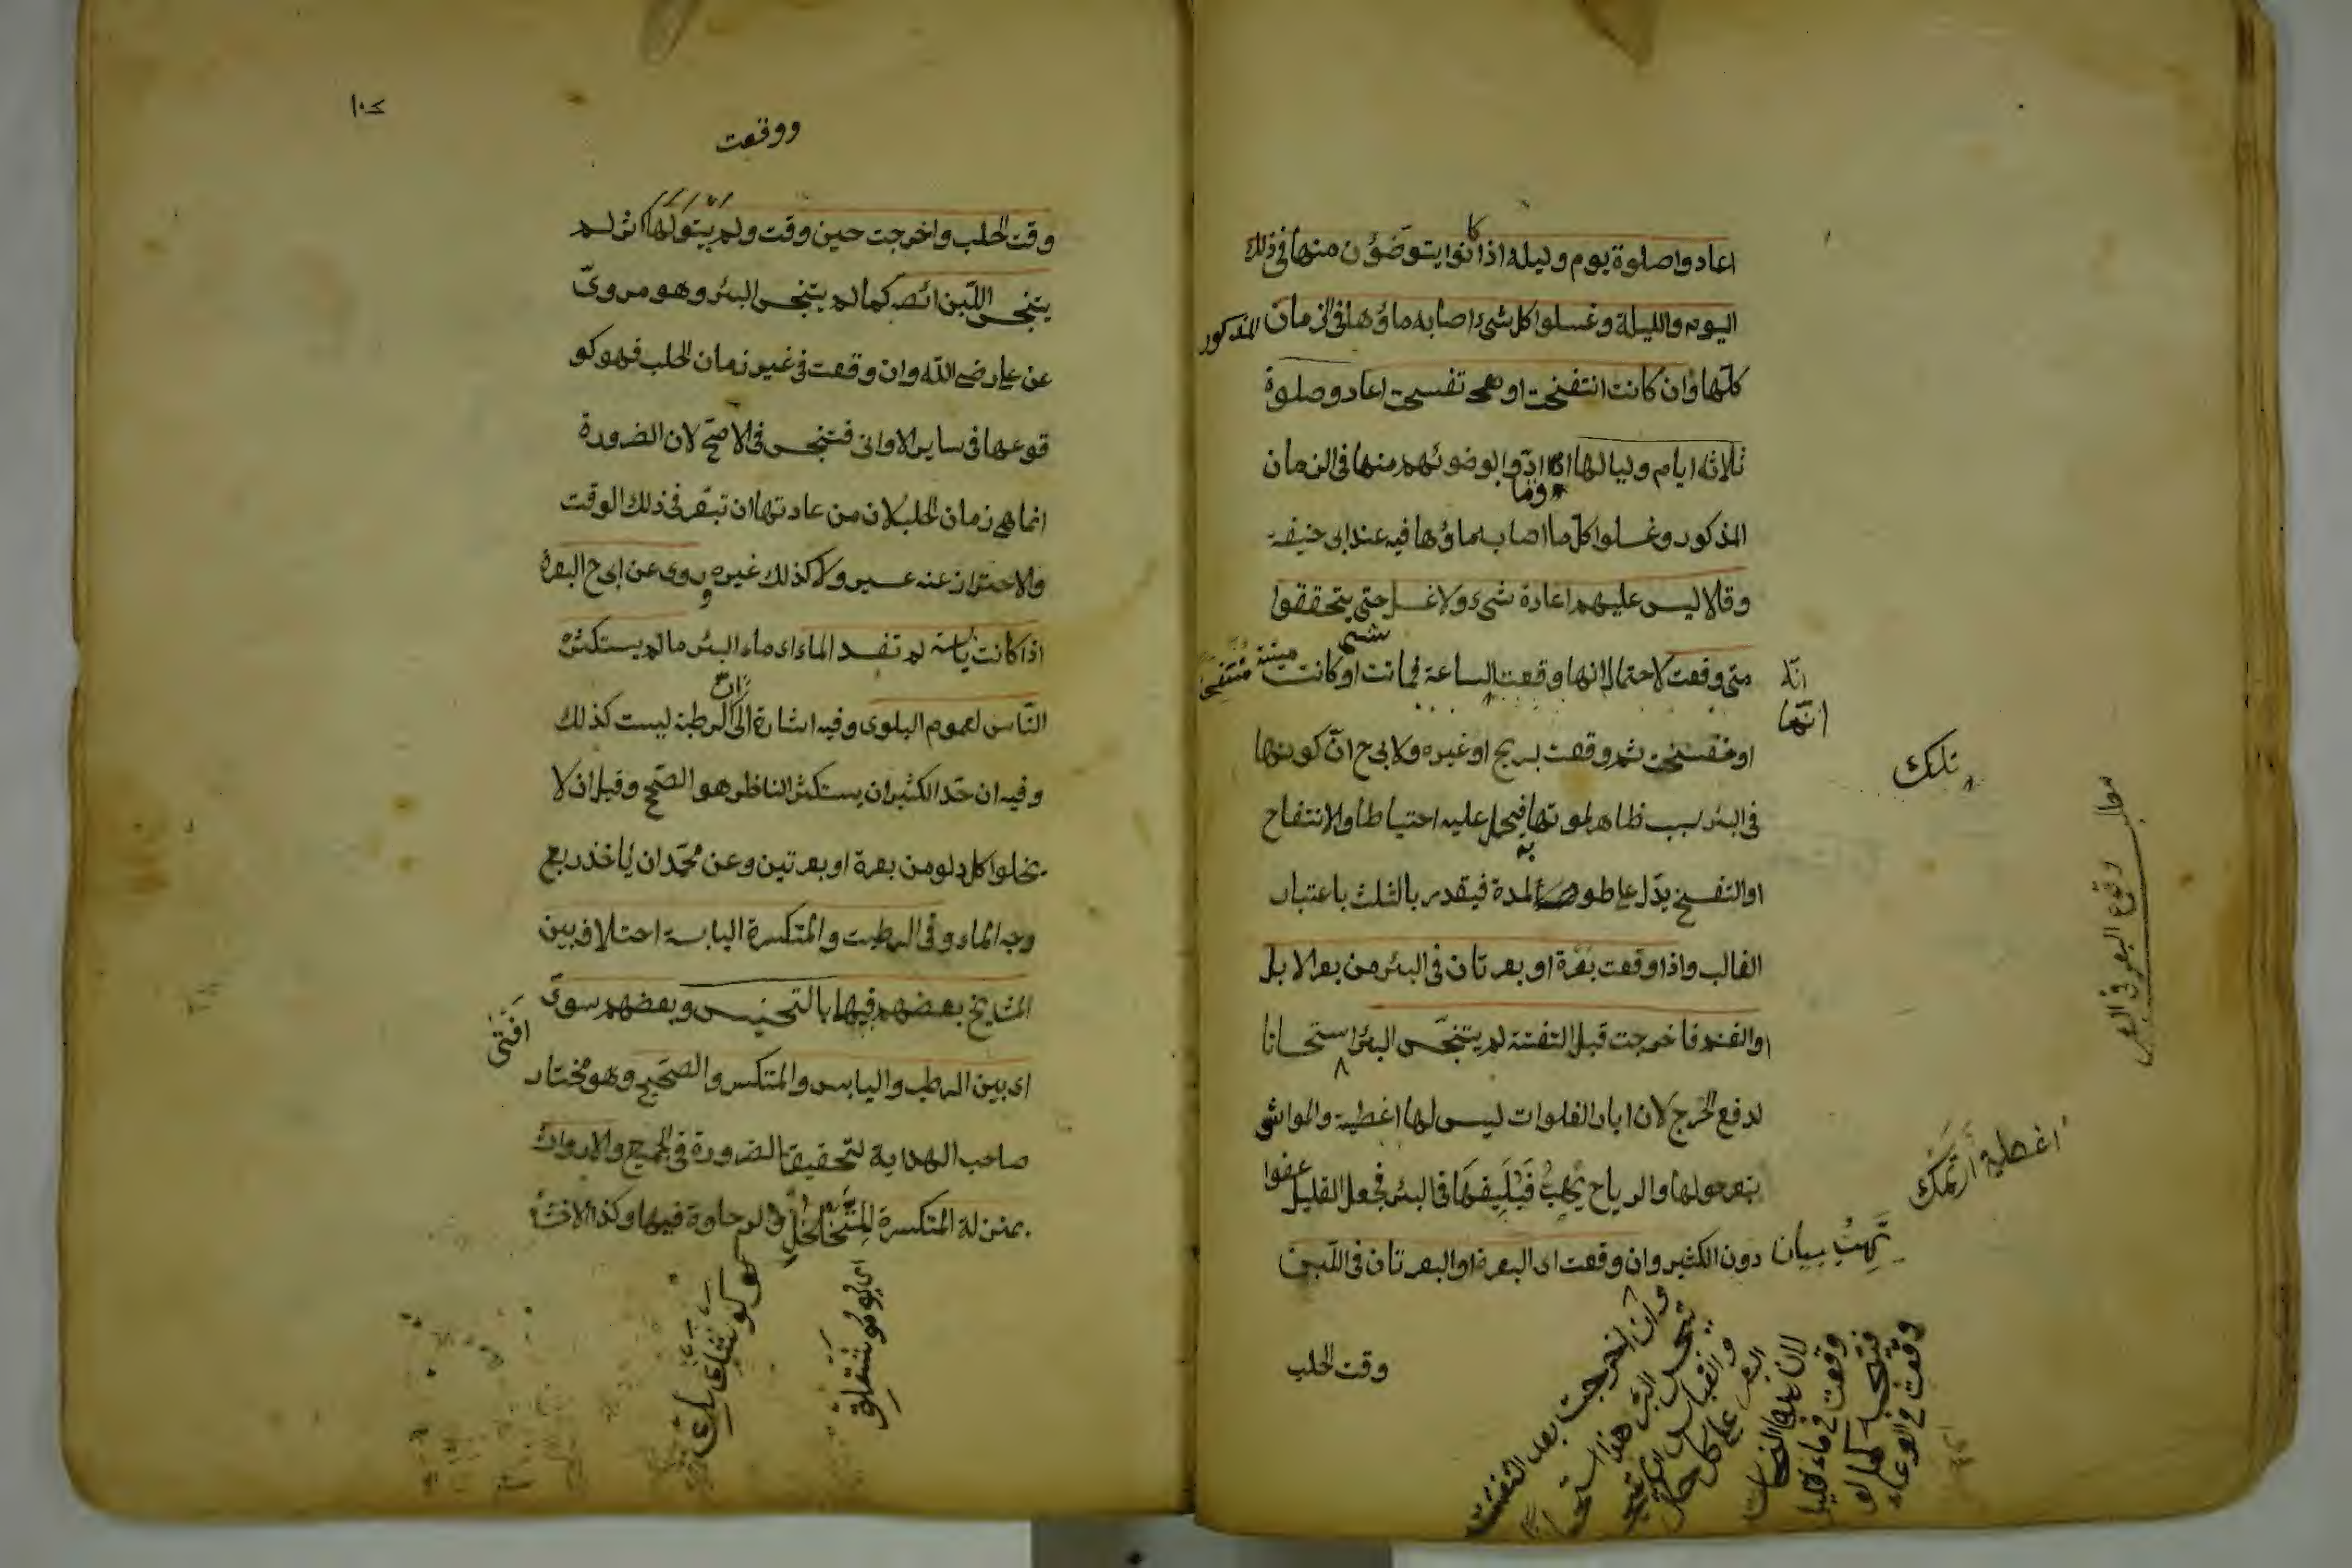 اعادوا صلوة يوم وليلة اذا كانوا يتوضؤن منها في ذلك
اليوم والليلة وغسلوا كل شيء اصابه ماؤها في الزمان المذكور
كلها وان كانت انتفخت او تفسخت اعادو صلوة
ثلاثة ايام ولياليها لوضوئهم منها في الزمان
المذكور وغسلوا كل ما اصابه ماؤها فيه عند ابى حنيفة
وقالا ليس عليهم اعادة شيء ولا غسل حتى يتحققوا
متى وقعت لاحتمال انها وقعت الساعة فماتت او كانت ميتة منتفخة
انه
انها
او تفسخت ثم وقعت بريح او غيره ولابى ح ان كونها
في البئر سبب ظاهر لموتها فيحمل عليه احتياطا والانتفاخ
او التفسخ يدل على طول المدة فيقدر بالثلث باعتبار
الغالب واذا وقعت بعرة او بعرتان في البئر من بعر الابل
او الغنم فاخرجت قبل التفتة لم يتنجس البئر استحسانا
لدفع الحرج لان ابار الفلوات ليس لها اغطية والمواشى
تبعر حولها والرياح تهب فيلقيها في البئر فجعل القليل عفوا
دون الكثير وان وقعت اى البعرة او البعرتان في اللبن
وقت الحلب
مطلب وقوع البعر في البئر
وان اخرجت بعد التفتت
تنجس البئر هذا استحسانا
والقياس ان تنجس
البعر على كل حال
لان هذه النجاسات
وقعت في ماء قليل
فتنجسه كما لو
وقعت في الوعاء
١٠٢
ووقعت
وقت الحلب واخرجت حين وقعت ولم يبق لها اثر لم
يتنجس اللبن ايضا كما لم يتنجس البئر وهو مروى
عن على رضى الله وان وقعت في غير زمان الحلب فهو كو
قوعها في ساير الاوانى فتنجس في الاصح لان الضرورة
انما هى زمان الحلب لان من عادتها ان تبعر في ذلك الوقت
والاحتراز عنه عسير ولا كذلك غيره وروى عن ابى ح البعرة
اذا كانت يابسة لم تفسد الماء اى ماء البئر ما لم يستكثره
الناس لعموم البلوى وفيه اشارة الى ان الرطبة ليست كذلك
وفيه ان حد الكثير ان يستكثر الناظر هو الصحيح وقيل ان لا
يخلوا كل دلو من بعرة او بعرتين وعن محمد ان ياخذ ربع
وجه الماء وفي الرطبت والمتكسرة اليابسة اختلاف بين
المشايخ بعضهم فيها بالتنجيس وبعضهم سوى
افتى
اى بين الرطب واليابس والمتكسر والصحيح وهو مختار
صاحب الهداية لتحقيق الضرورة في الجميع والارواث
بمنزلة المتكسرة للتخلخل والرخاوة فيها وكذا الاخثاء